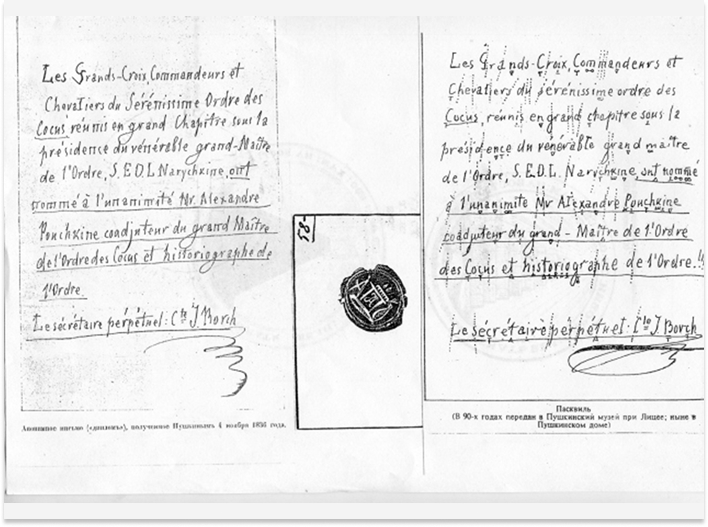 Les Grands-Croix, Commandeurs et
Chevaliers du Sérénissime Ordre des
Cocus réunis en grand Chapitre sous la
présidence du vénérable grand-Maître
de l'Ordre, S.E.D.L. Narychkine, ont
nommé à l'unanimité Mr. Alexandre
Pouchkine coadjuteur du grand Maître
de l'Ordre des Cocus et historiographe de
l'Ordre
Le sécrétaire perpétuel: Cte J Borch
Анонимное письмо («диплом»), полученное Пушкиным 4 ноября 1836 года.
58-
Les Grands-Croix, Commandeurs et
Chevaliers du sérénissime ordre des
Cocus, réunis en grand chapitre sous la
présidence du vénérable grand maître
de l'Ordre, S.E.D.L. Narychkine, ont nommé
à l'unanimité Mr Alexandre Pouchkine
coadjuteur du grand-Maître de l'Ordre
des Cocus et historiographe de l'Ordre.
Le sécrétaire perpétuel: Cte J Borch
Пасквиль
(В 90-х годах передан в Пушкинский музей при Лицее; ныне в
Пушкинском доме)